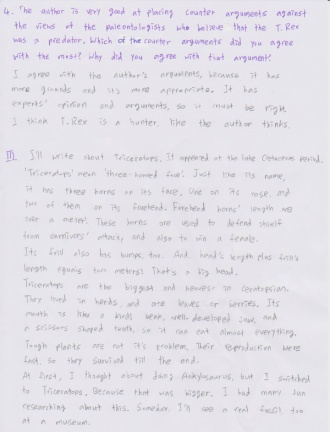 4. The author is very good at placing counter arguments against
the views of the paleontologists who believe that the T.Rex
was a predator. Which of the counter arguments did you agree
with the most? Why did you agree with that argument?
I agree with the author's arguments, because it has
more grounds and it's more appropriate. It has
experts' opinion and arguments, so it must be right.
I think T.Rex is a hunter, like the author thinks.
III. I'll write about Triceratops. It appeared at the late Cetaceous period.
'Triceratops' mean 'three-horned face'. Just like its name,
it has three horns on its face. One on its nose, and
two of them on its forehead. Forehead horns' length are
over a meter. These horns are used to defend itself
from carnivores' attack, and also to win a female.
Its frill also has bumps, too. And, head's length plus frill's
length equals two meters! That's a big head.
Triceratops are the biggest and newest in ceratopsian.
They lived in herds, and ate leaves or berries. Its
mouth is like a birds beak, well-developed jaw, and
a scissors shaped tooth, so it can eat almost everything.
Tough plants are not it's problem. Their reproduction were
fast, so they survived till the end.
At first, I thought about doing Ankylosaurus, but I switched
to Triceratops, because that was bigger. I had many fun
researching about this. Someday, I'll see a real fossil, too
at a museum.